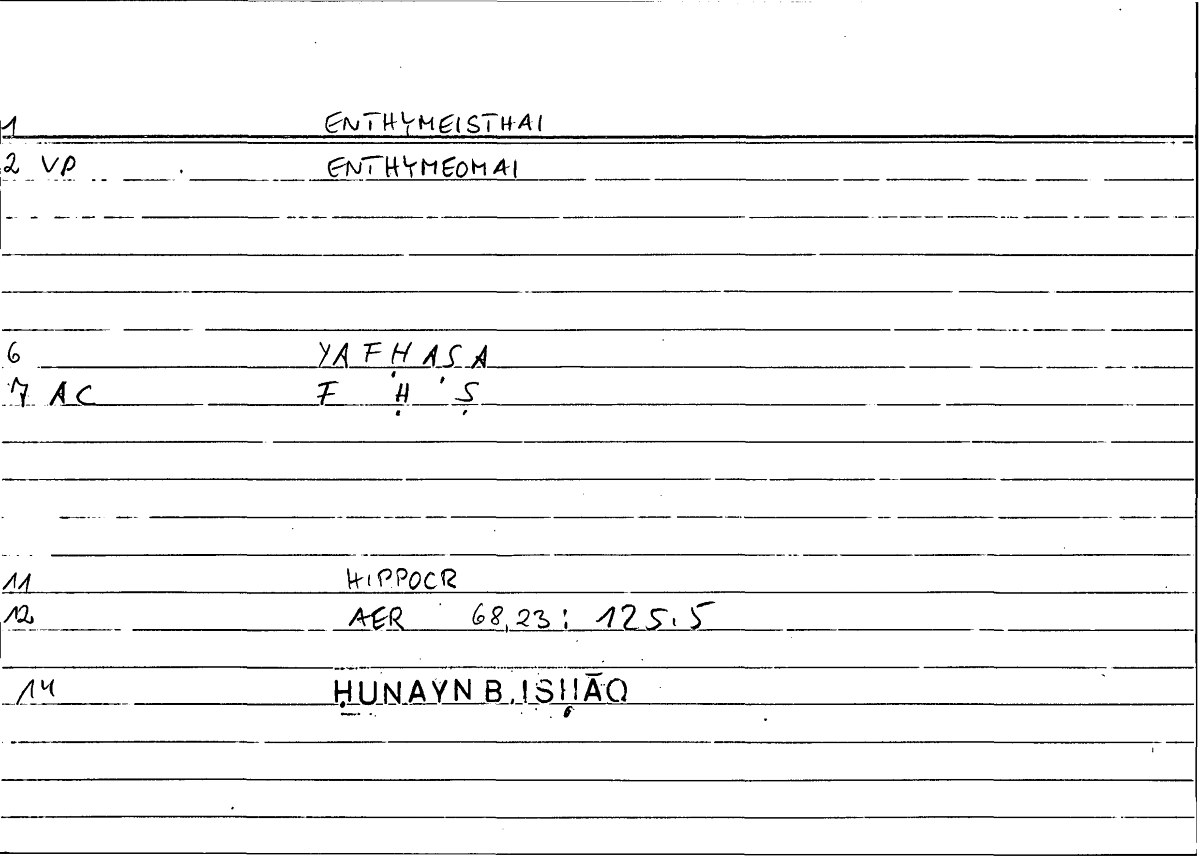 1 ENTHYMEISTHAI
2 VP ENTHYMEOMAI
6 YAFḤAṢA
7 AC F Ḥ Ṣ
11 HIPPOCR
12 AER 68,23: 125.5
14 ḤUNAYN B. ISḤĀQ